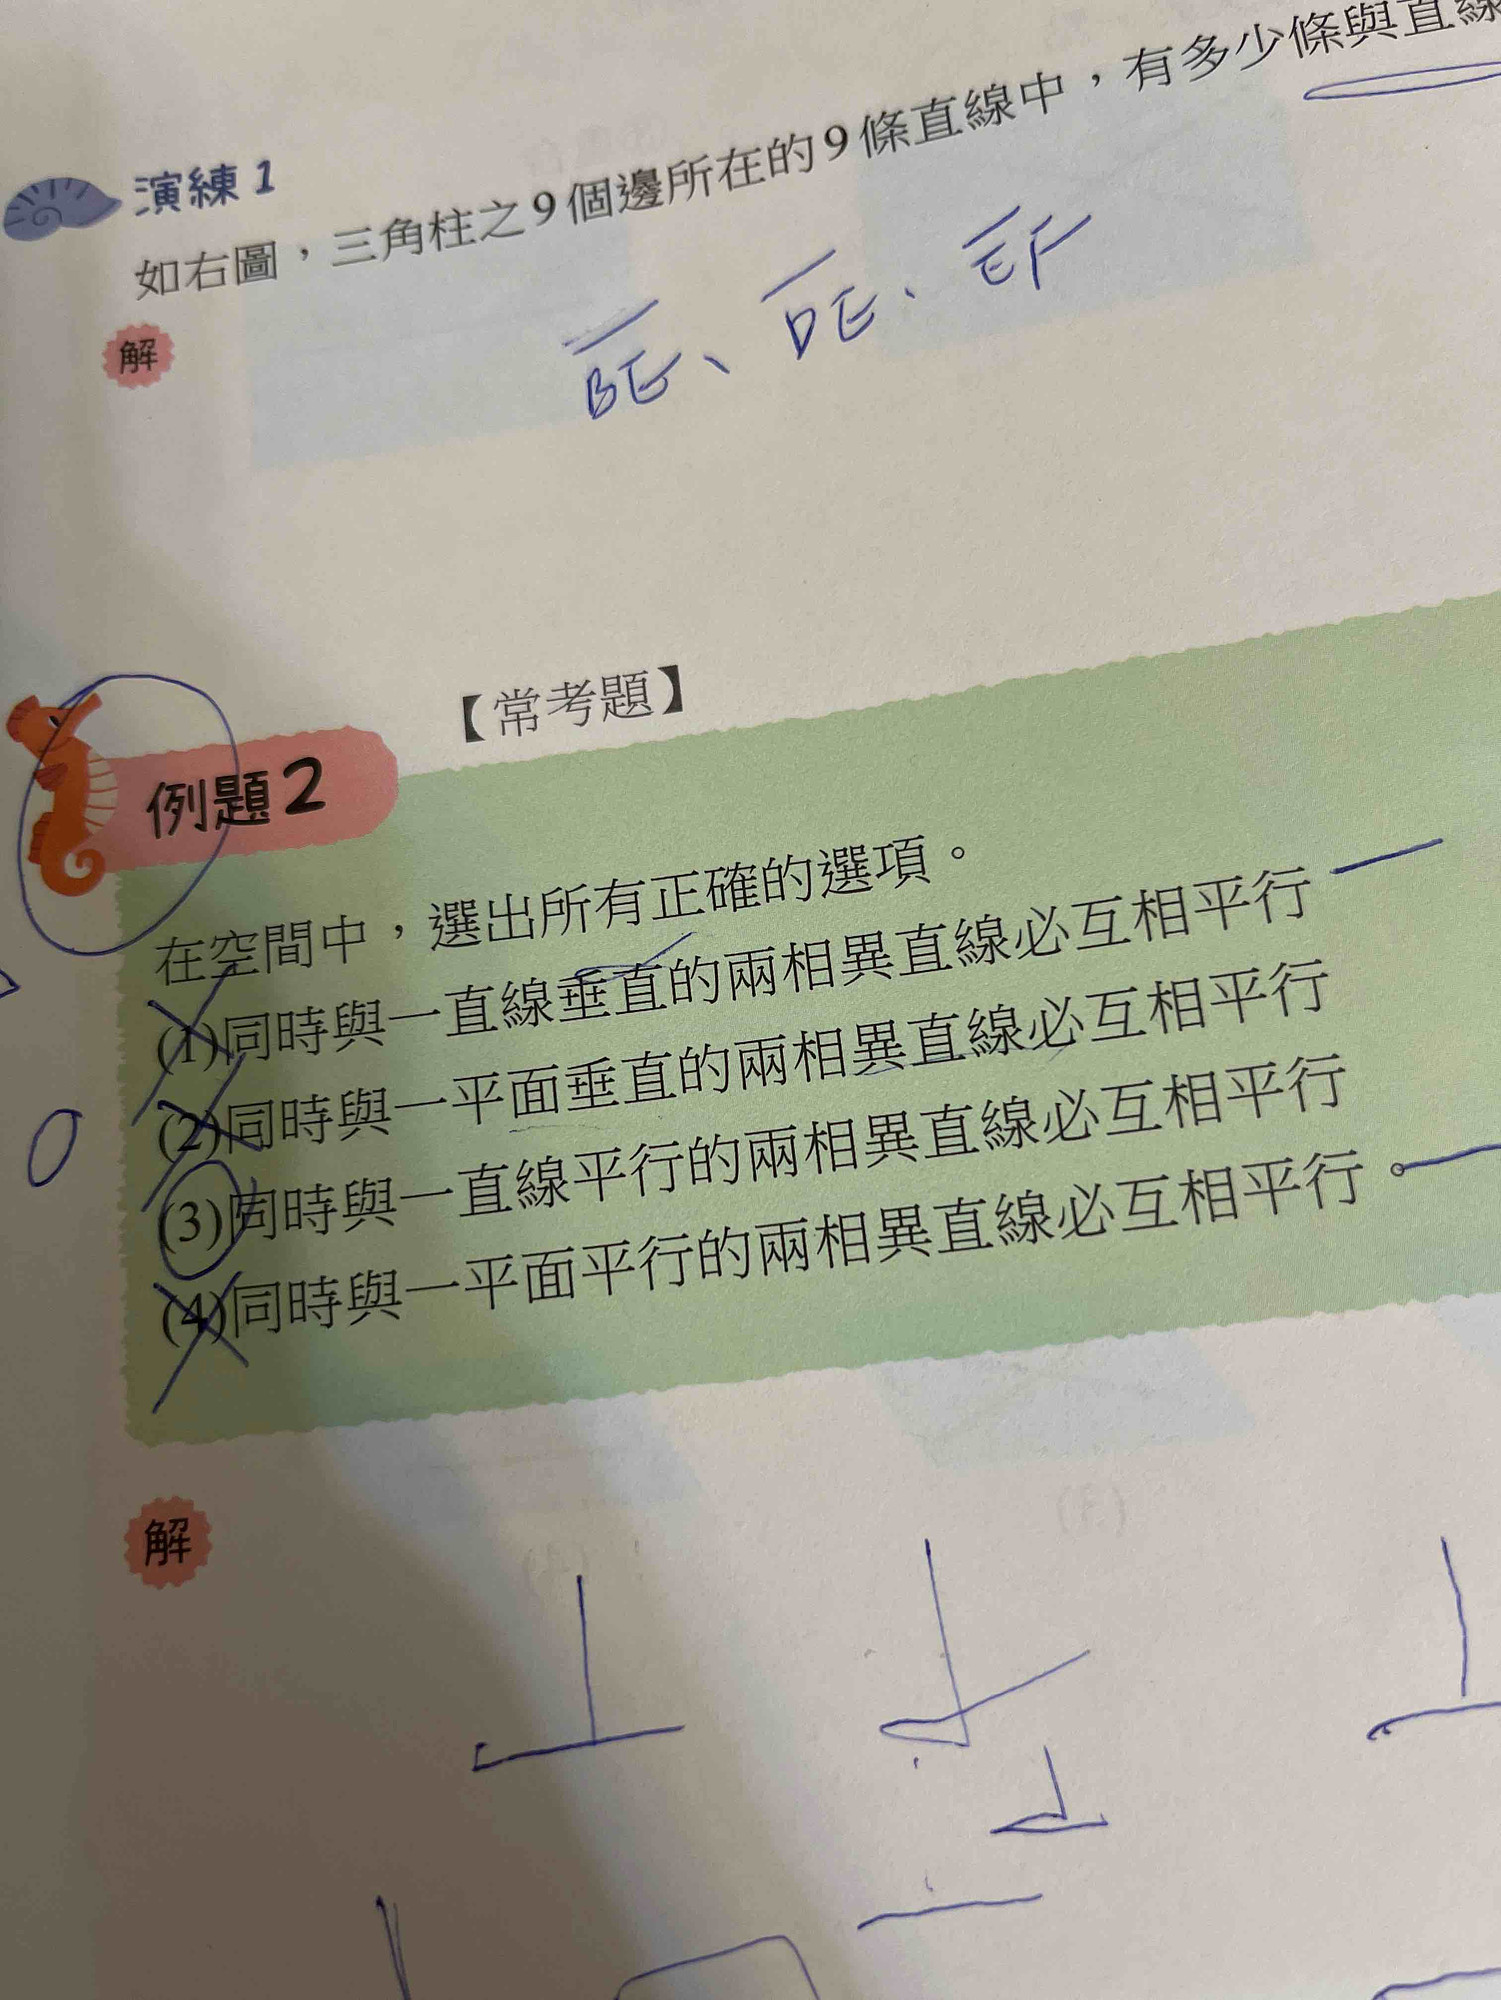 演練 1
如右圖，三角柱之 9 個邊所在的 9 條直線中，有多少條與直線
解
BE、DE、EF
【常考題】
例題 2
在空間中，選出所有正確的選項。
(1)同時與一直線垂直的兩相異直線必互相平行
(2)同時與一平面垂直的兩相異直線必互相平行
(3)同時與一直線平行的兩相異直線必互相平行
(4)同時與一平面平行的兩相異直線必互相平行。
解